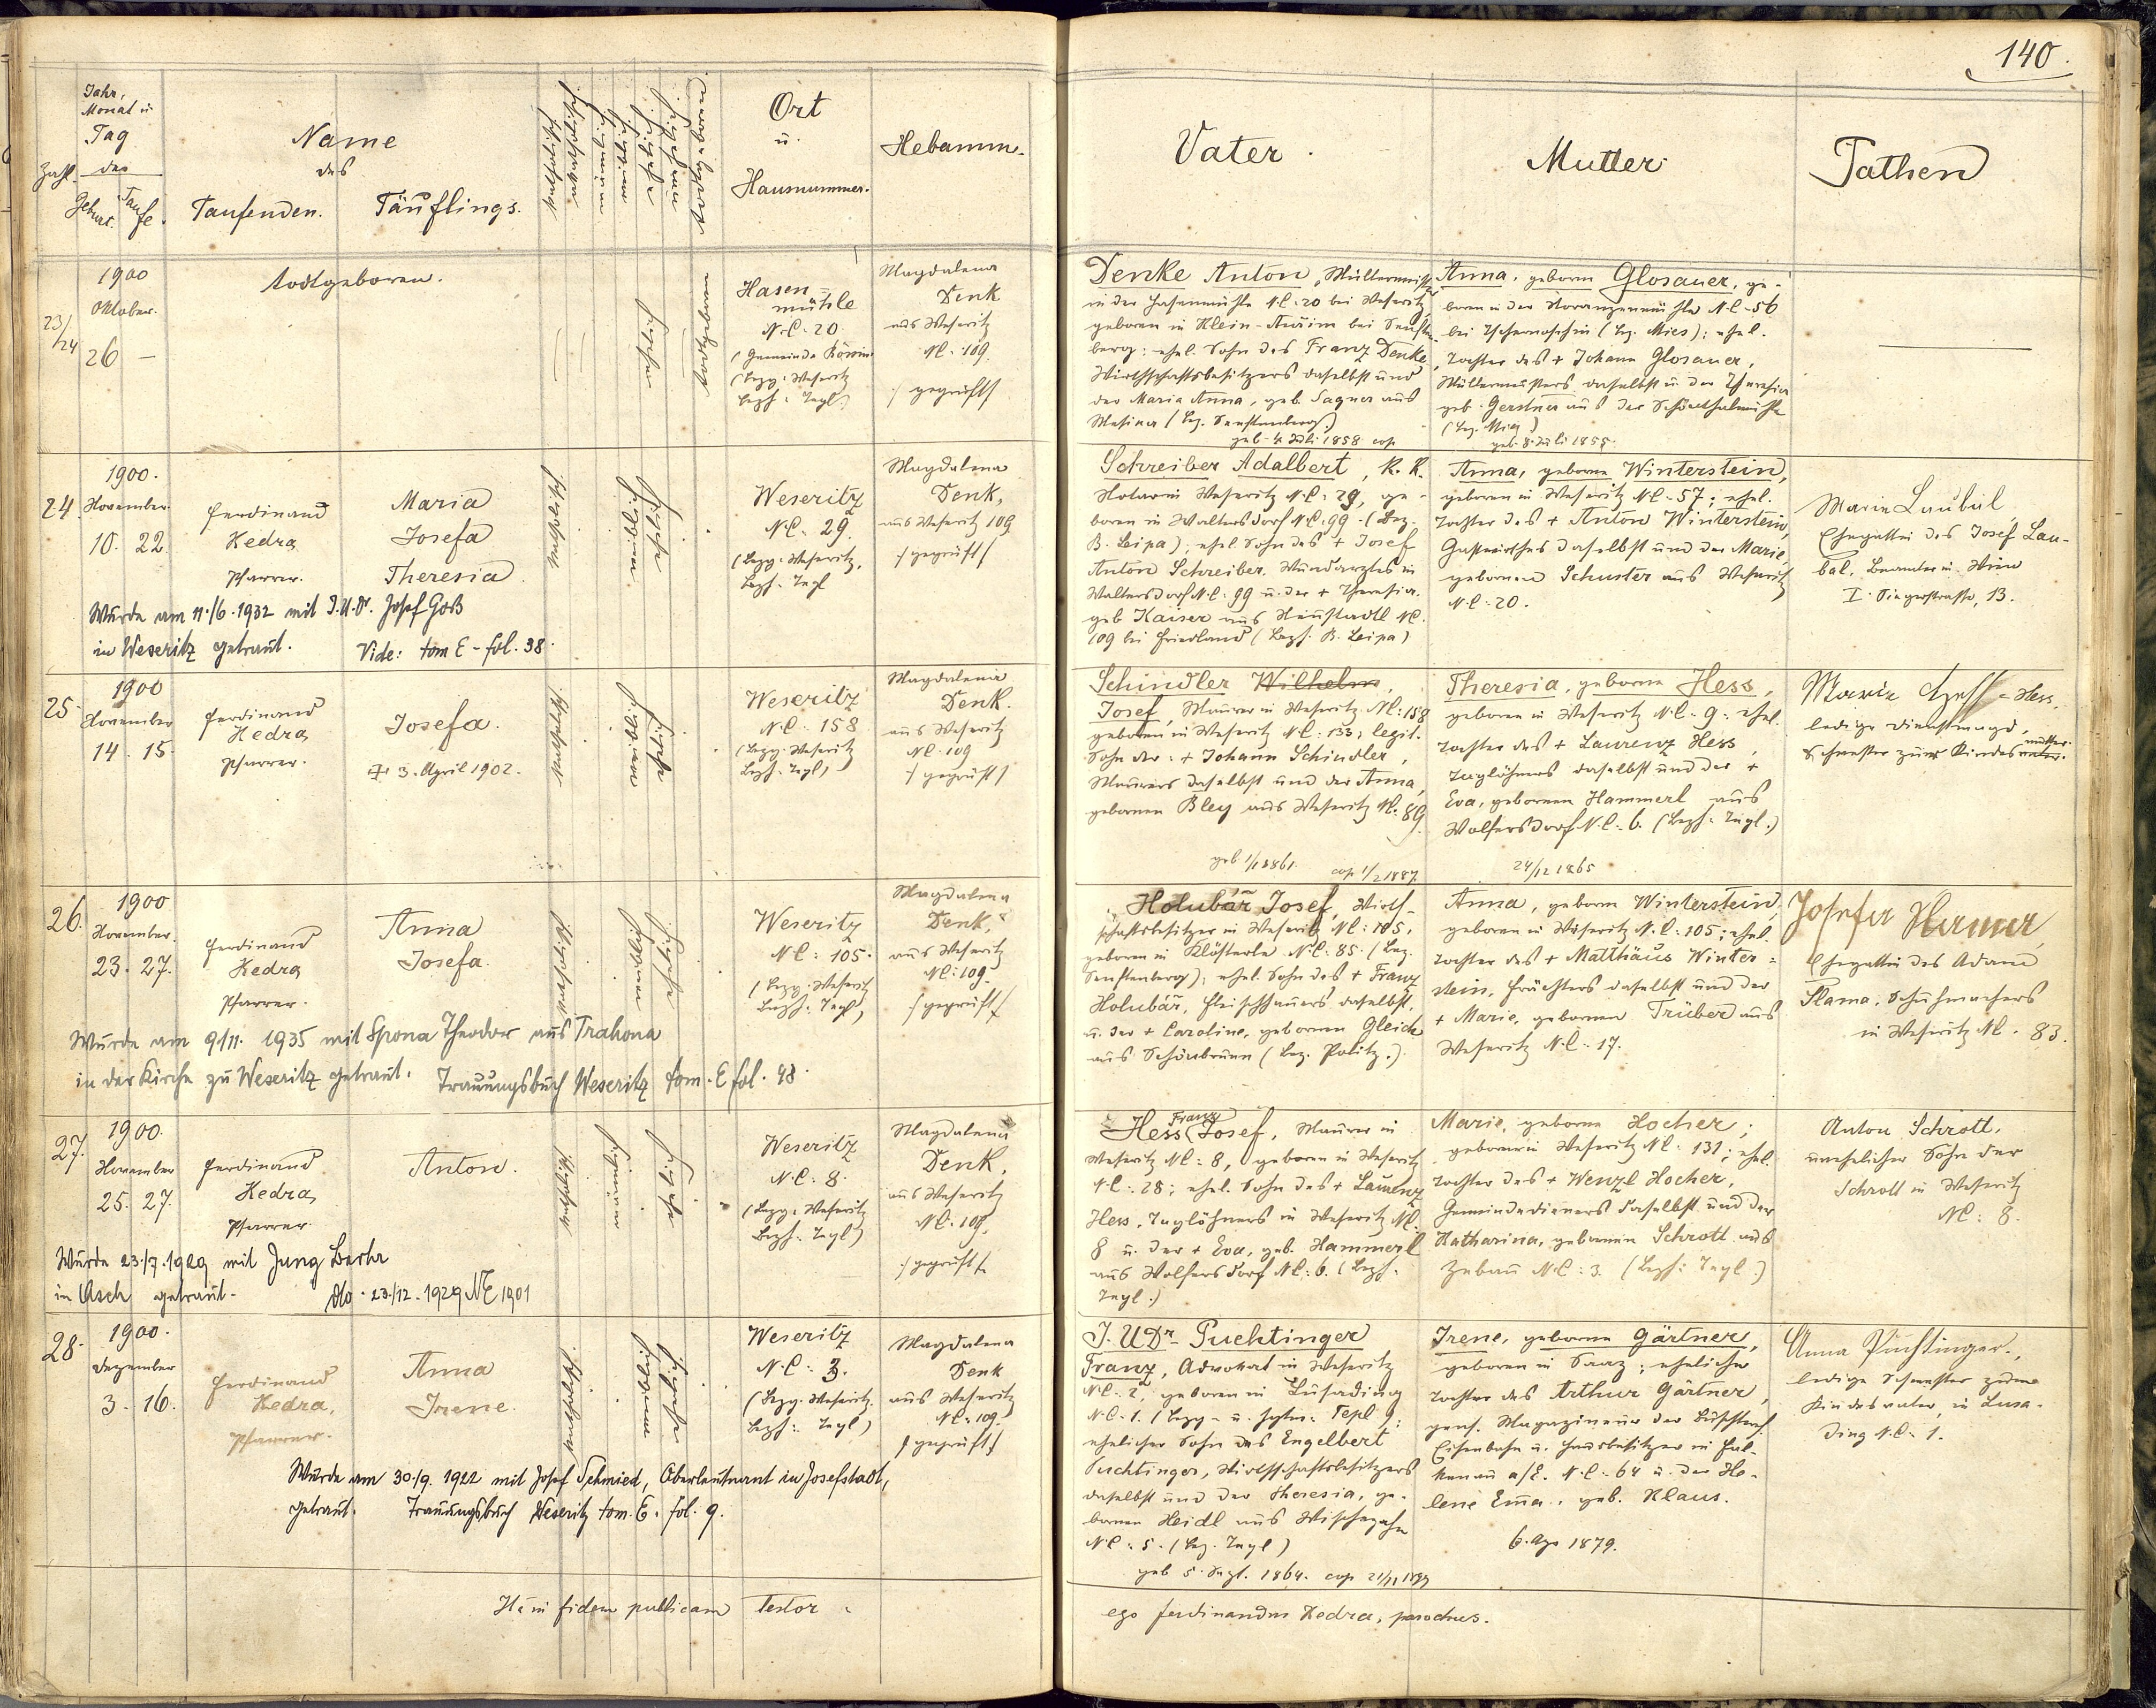 140.
Jahr,
Monat u
Tag
Zahl. der
Geburt. Taufe.
Name
des
Taufenden. Täuflings.
Ort
u.
Hausnummer.
Hebamme.
Vater.
Mutter
Pathen
23/24
1900
Oktober.
26 —
todtgeboren.
todtgeboren
Hasen-
mühle
N.C. 20
(Gemeinde
(Bzg: Weseritz
Bezh: Tepl)
Magdalena
Denk
aus Weseritz
NC. 109.
/ geprüft /
Denke Anton, Müllermeister
in der Hasenmühle N.C. 20 bei Weseritz,
geboren in Klein-Auřim bei Senften-
berg: ehel. Sohn des Franz Denke
Wirthschaftsbesitzers daselbst und
der Maria Anna, geb. Sagner aus
(Bez. Senftenberg.)
geb. 4. Juli 1858 cop
Anna, geborne Glosauer, ge-
boren in der N.C. 56
bei Tschernoschin (Bez. Mies); ehel.
Tochter des + Johann Glosauer,
Müllermeisters daselbst u. der Theresia
geb. Gerstner aus der
(Bez. Mies)
geb. 8. Juli 1855.
24.
1900.
November.
10. 22.
Ferdinand
Kedra
Pfarrer.
Maria
Josefa
Theresia.
katholisch
Weseritz
N.C. 29.
(Bezg: Weseritz,
Bezh: Tepl
Magdalena
Denk,
aus Weseritz 109.
/ geprüft /
Wurde am 11./6. 1932 mit J.U.Dr. Josef Goß
in Weseritz getraut. Vide: tom E - fol. 38.
Schreiber Adalbert, K. K.
Notar in Weseritz N.C. 29, ge-
boren in Waltersdorf N.C. 99. (Bez.
B. Leipa); ehel. Sohn des + Josef
Anton Schreiber, Wundarztes in
Waltersdorf N.C. 99 u. der + Theresia.
geb Kaiser aus Neustadtl NC.
109 bei Friedland (Bezh. B. Leipa)
Anna, geborne Winterstein,
geboren in Weseritz NC. 57; ehel.
Tochter des + Anton Winterstein,
Gastwirthes daselbst und der Marie,
gebornen Schuster aus Weseritz
N.C. 20.
Marie Laubal,
Ehegattin des Josef Lau-
bal, Beamter in Wien
I. Singerstrasse, 13.
25.
1900
November
14. 15.
Ferdinand
Kedra,
Pfarrer.
Josefa.
+ 3. April 1902.
katholisch
Weseritz
N.C. 158
(Bezg: Weseritz
Bezh: Tepl)
Magdalena
Denk.
aus Weseritz
NC. 109
/ geprüft /
Schindler Wilhelm,
Josef, Maurer in Weseritz NC: 158
geboren in Weseritz NC: 133; legit.
Sohn der: + Johann Schindler,
Maurers daselbst und der Anna,
gebornen Bley aus Weseritz NC. 89.
geb 1/1 1861. cop. 1/2 1887.
Theresia, geborne Hess,
geboren in Weseritz N.C. 9; ehel.
Tochter des + Laurenz Hess,
Taglöhners daselbst und der +
Eva, gebornen Hammerl aus
Wolfersdorf N.C.: 6. (Bezh: Tepl.)
24/12 1865
Marie Hess,
ledige Dienstmagd,
Schwester zur Kindesmutter.
26.
1900
November.
23. 27.
Ferdinand
Kedra
Pfarrer.
Anna
Josefa.
katholisch
Weseritz
NC: 105.
(Bezg: Weseritz
Bezh: Tepl)
Magdalena
Denk,
aus Weseritz
NC: 109.
/ geprüft /
Wurde am 9/11. 1935 mit Spona Theodor aus Trahona
in der Kirche zu Weseritz getraut. Trauungsbuch Weseritz tom. E fol. 48.
Holubář Josef, Wirth-
schaftsbesitzer in Weseritz NC: 105,
geboren in Klösterle NC: 85. (Bez.
Senftenberg); ehel. Sohn des + Franz
Holubář, Fleischhauers daselbst,
u. der + Caroline, gebornen Gleich
aus Schönbrunn (Bez. Politz.)
Anna, geborne Winterstein,
geboren in Weseritz N.C. 105; ehel.
Tochter des + Matthäus Winter-
stein, daselbst und der
+ Marie, gebornen Trüber aus
Weseritz N.C. 17.
Josefa
Ehegattin des Adam
Slama, Schuhmachers
in Weseritz NC. 83.
27.
1900.
November
25. 27.
Ferdinand
Kedra,
Pfarrer.
Anton.
katholisch
Weseritz
N.C. 8.
(Bezg: Weseritz
Bezh: Tepl)
Magdalena
Denk,
aus Weseritz
NC. 109.
/ geprüft /
Wurde 23./7. 1929 mit Jung Berta
in Asch getraut. dto. 23./12. 1929 NE 1901
Franz
Hess (Josef, Maurer in
Weseritz NC: 8, geboren in Weseritz
N.C.: 28; ehel. Sohn des + Laurenz
Hess, Taglöhners in Weseritz NC.
8 u. der + Eva, geb. Hammerl
aus Wolfersdorf NC: 6. (Bezh.
Tepl.)
Marie, geborne Hocher;
geboren in Weseritz NC. 131; ehel.
Tochter des + Wenzl Hocher,
Gemeindedieners daselbst und der
Katharina, gebornen Schrott aus
Zebau NC: 3. (Bezh: Tepl.)
Anton Schrott,
unehelicher Sohn der
Schrott in Weseritz
NC: 8.
28.
1900.
Dezember
3. 16.
Ferdinand
Kedra,
Pfarrer.
Anna
Irene.
katholisch
Weseritz
N.C: 3.
(Bezg. Weseritz.
Bezh: Tepl)
Magdalena
Denk
aus Weseritz
NC. 109.
/ geprüft /
Wurde am 30./9. 1922 mit Josef Schmied, Oberleutnant in Josefstadt,
getraut. Trauungsbuch Weseritz tom. E. fol. 9.
J. U Dr. Puchtinger
Franz, Advokat in Weseritz
N.C. 2, geboren in Lusading
N.C. 1. (Bezg- u. Tepl);
ehelicher Sohn des Engelbert
Puchtinger, Wirthschaftsbesitzers
daselbst und der Theresia, ge-
bornen Heidl aus
NC. 5. (Bez. Tepl)
geb 5. Sept. 1864. cop 21/11 1899
Irene, geborne Gärtner,
geboren in Saaz; eheliche
Tochter des Arthur Gärtner,
pens. Magazineur der Buschtěhr.
Eisenbahn u. Hausbesitzer in Fal-
kenau a/E. N.C. 64 u. der He-
lene Emma, geb. Klaus.
6. Ago 1879.
Anna Puchtinger.,
ledige Schwester zum
Kindesvater, in Lusa-
ding N.C. 1.
in fidem publicam Testor
ego Ferdinandus Kedra, parochus.